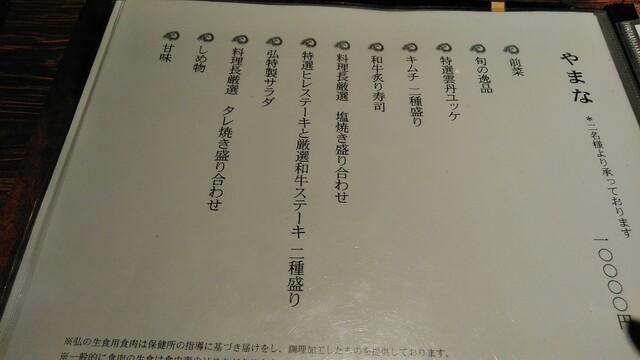 やまな
*二名様より承っております
一〇〇〇〇円
前菜
旬の逸品
特選雲丹ユッケ
キムチ 二種盛り
和牛炙り寿司
料理長厳選 塩焼き盛り合わせ
特選ヒレステーキと厳選和牛ステーキ 二種盛り
弘特製サラダ
料理長厳選 タレ焼き盛り合わせ
しめ物
甘味
※弘の生食用食肉は保健所の指導に基づき届けをし、調理加工したものを提供しております。
※一般的に食肉の生食は食中毒の